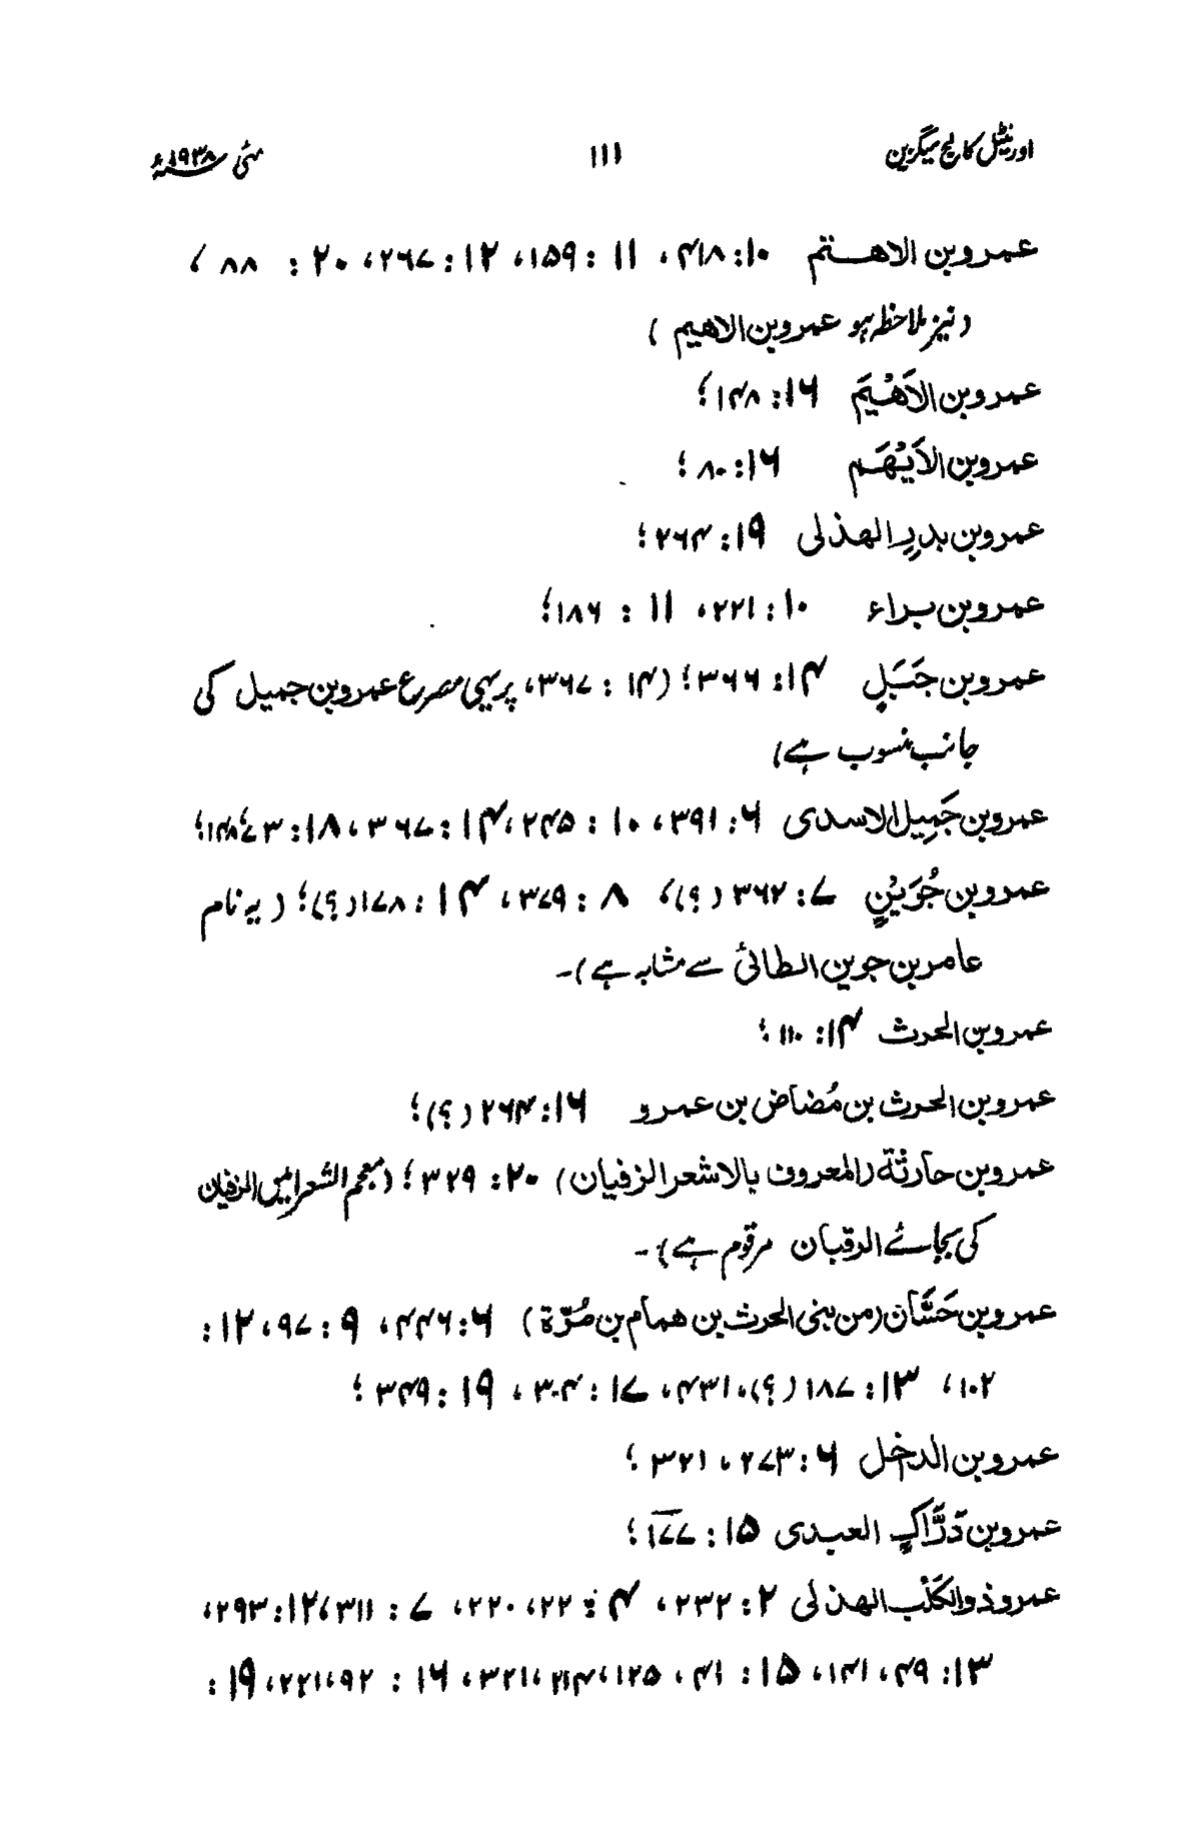 اورنٹیل کالج میگزین ۱۱۱ مئی ۱۹۳۸ء
عمرو بن الاهتم ۱۰: ۴۱۸، ۱۱: ۱۵۹، ۱۲: ۲۶۷، ۲۰: ۸۸،
(نیز ملاحظہ ہو عمرو بن الاهیم)
عمرو بن الاَهْیَم ۱۶: ۱۴۸؛
عمرو بن الاَیْهَم ۱۶: ۸۰؛
عمرو بن بدرِ الهذلی ۱۹: ۲۶۴؛
عمرو بن براء ۱۰: ۲۲۱، ۱۱: ۱۸۶؛
عمرو بن جَبَلٍ ۱۴: ۳۶۶؛ (۱۴: ۳۶۷، پر یہی مصرع عمرو بن جمیل کی
جانب منسوب ہے)
عمرو بن جَمِیل الاسدی ۶: ۳۹۱، ۱۰: ۲۴۵، ۱۴: ۳۶۷، ۱۸:
عمرو بن جُوَیْنٍ ۷: ۳۶۲ (؟)، ۸: ۳۷۹، ۱۴: ۱۷۸ (؟)؛ (یہ نام
عامر بن جوین الطائیٔ سے مشابہ ہے)۔
عمرو بن الحرث ۱۴: ۱۱۰؛
عمرو بن الحرث بن مُضاض بن عمرو ۱۶: ۲۶۴ (؟)؛
عمرو بن حارثة (المعروف بالاشعر الزفیان) ۲۰: ۳۲۹؛ (معجم الشعرا میں الزفیان
کی بجائے الرقبان مرقوم ہے)۔
عمرو بن حَسَّان (من بنی الحرث بن همام بن مُرّة) ۶: ۴۴۶، ۹: ۹۷، ۱۲:
۱۰۲، ۱۳: ۱۸۷ (؟)، ۴۳۱، ۱۷: ۳۰۴، ۱۹: ۳۴۹؛
عمرو بن الدخل ۶: ۲۷۳، ۳۲۱؛
عمرو بن دَرَّاكٍ العبدی ۱۵: ۱۷۷؛
عمرو ذو الکَلْب الهذلی ۲: ۲۳۲، ۴: ۲۲، ۲۲۰، ۷: ۳۱۱، ۱۲: ۲۹۳،
۱۳: ۴۹، ۱۴۱، ۱۵: ۴۱، ۱۲۵، ۲۱۴، ۳۲۱، ۱۶: ۹۲، ۲۲۱، ۱۹: